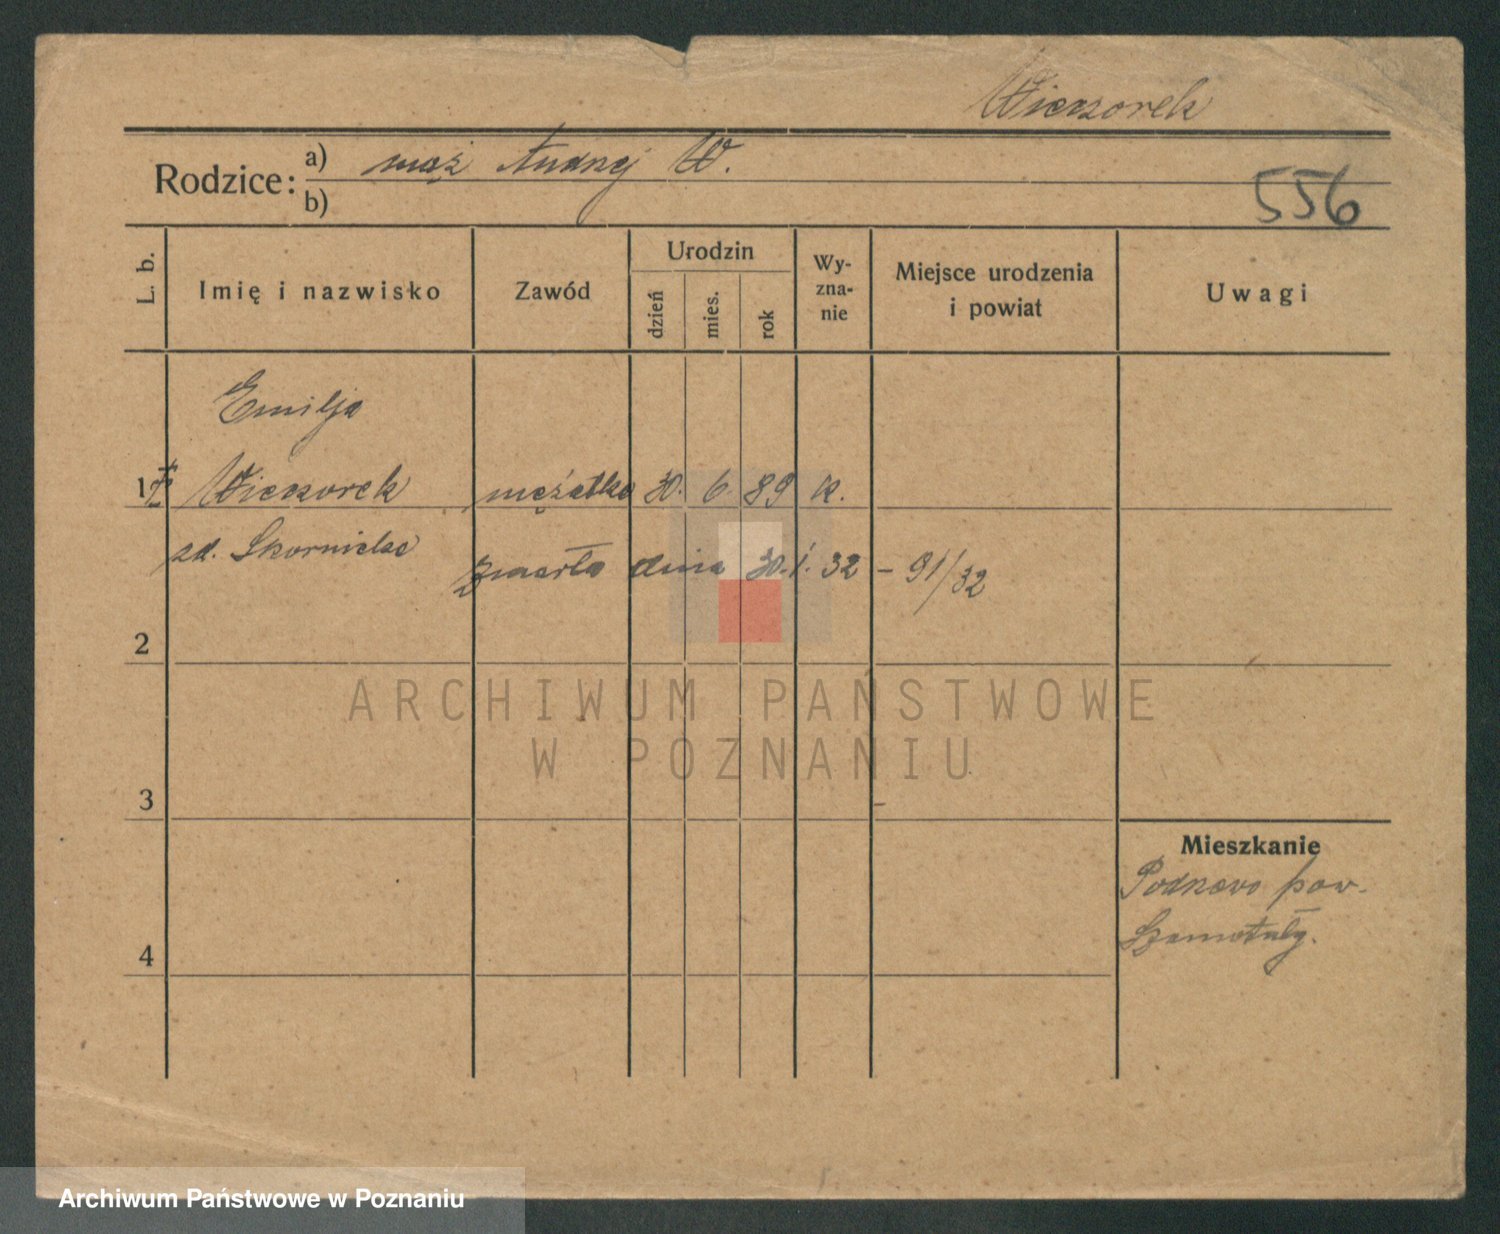 Wieczorek
Rodzice: a) mąż Andrzej W.
b)
556
L. b.
Imię i nazwisko
Zawód
Urodzin
dzień
mies.
rok
Wy-
zna-
nie
Miejsce urodzenia
i powiat
Uwagi
Emilja
1 Wieczorek mężatka 30. 6. 89 k.
zd.
zmarła dnia 30. 1. 32 – 91/32
2
ARCHIWUM PAŃSTWOWE
W POZNANIU
3
Mieszkanie
pow.
Szamotuły.
4
Archiwum Państwowe w Poznaniu